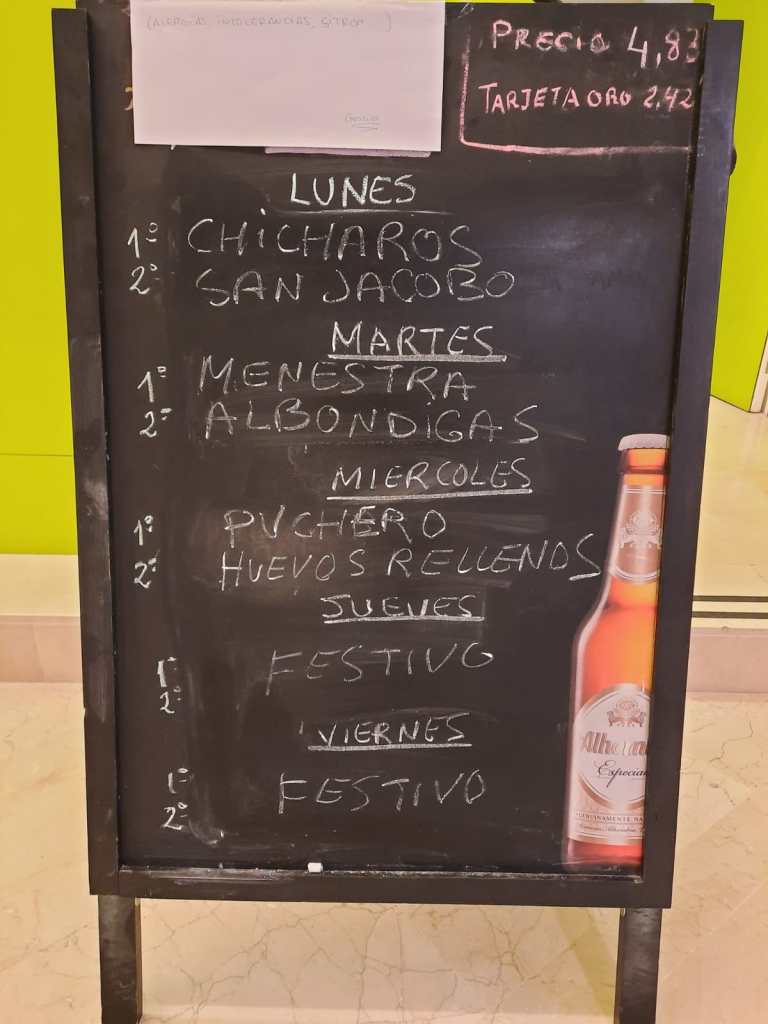 (ALERGIAS, INTOLERANCIAS, SINTROM )
Gracias
PRECIO 4,83
TARJETA ORO 2,42
LUNES
1º CHICHAROS
2º SAN JACOBO
MARTES
1º MENESTRA
2º ALBONDIGAS
MIERCOLES
1º PUCHERO
2º HUEVOS RELLENOS
JUEVES
1º FESTIVO
2º
VIERNES
1º FESTIVO
2º
Especial